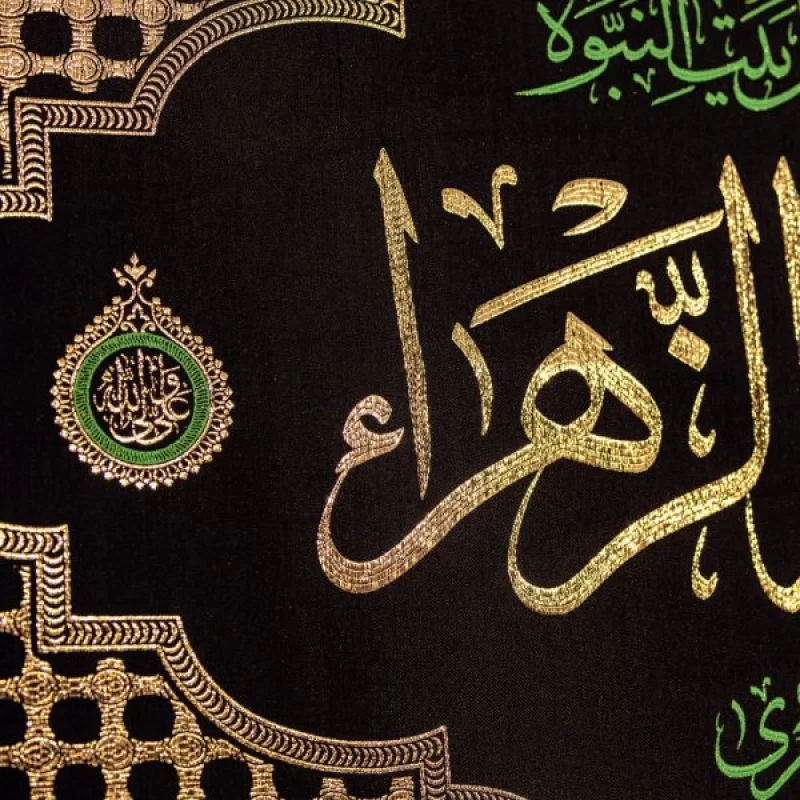 بَيْتِ النُّبُوَّة
الزَّهْرَاء
علي ولي الله